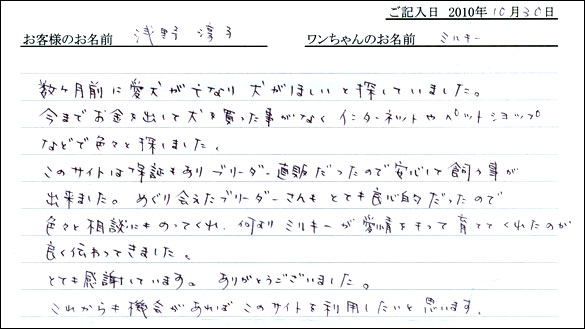 ご記入日 2010年10月30日
お客様のお名前 浅野 淳子 ワンちゃんのお名前 ミルキー
数ヶ月前に愛犬が亡くなり 犬がほしいと探していました。
今までお金を出して犬を買った事がなく インターネットや ペットショップ
などで色々と探しました。
このサイトは保証もあり ブリーダー直販だったので安心して飼う事が
出来ました。 めぐり会えたブリーダーさんも とても良心的だったので
色々と相談にものってくれ、何より ミルキーが 愛情をもって 育ててくれたのが
良く伝わってきました。
とても感謝しています。 ありがとうございました。
これからも機会があれば このサイトを利用したいと 思います。